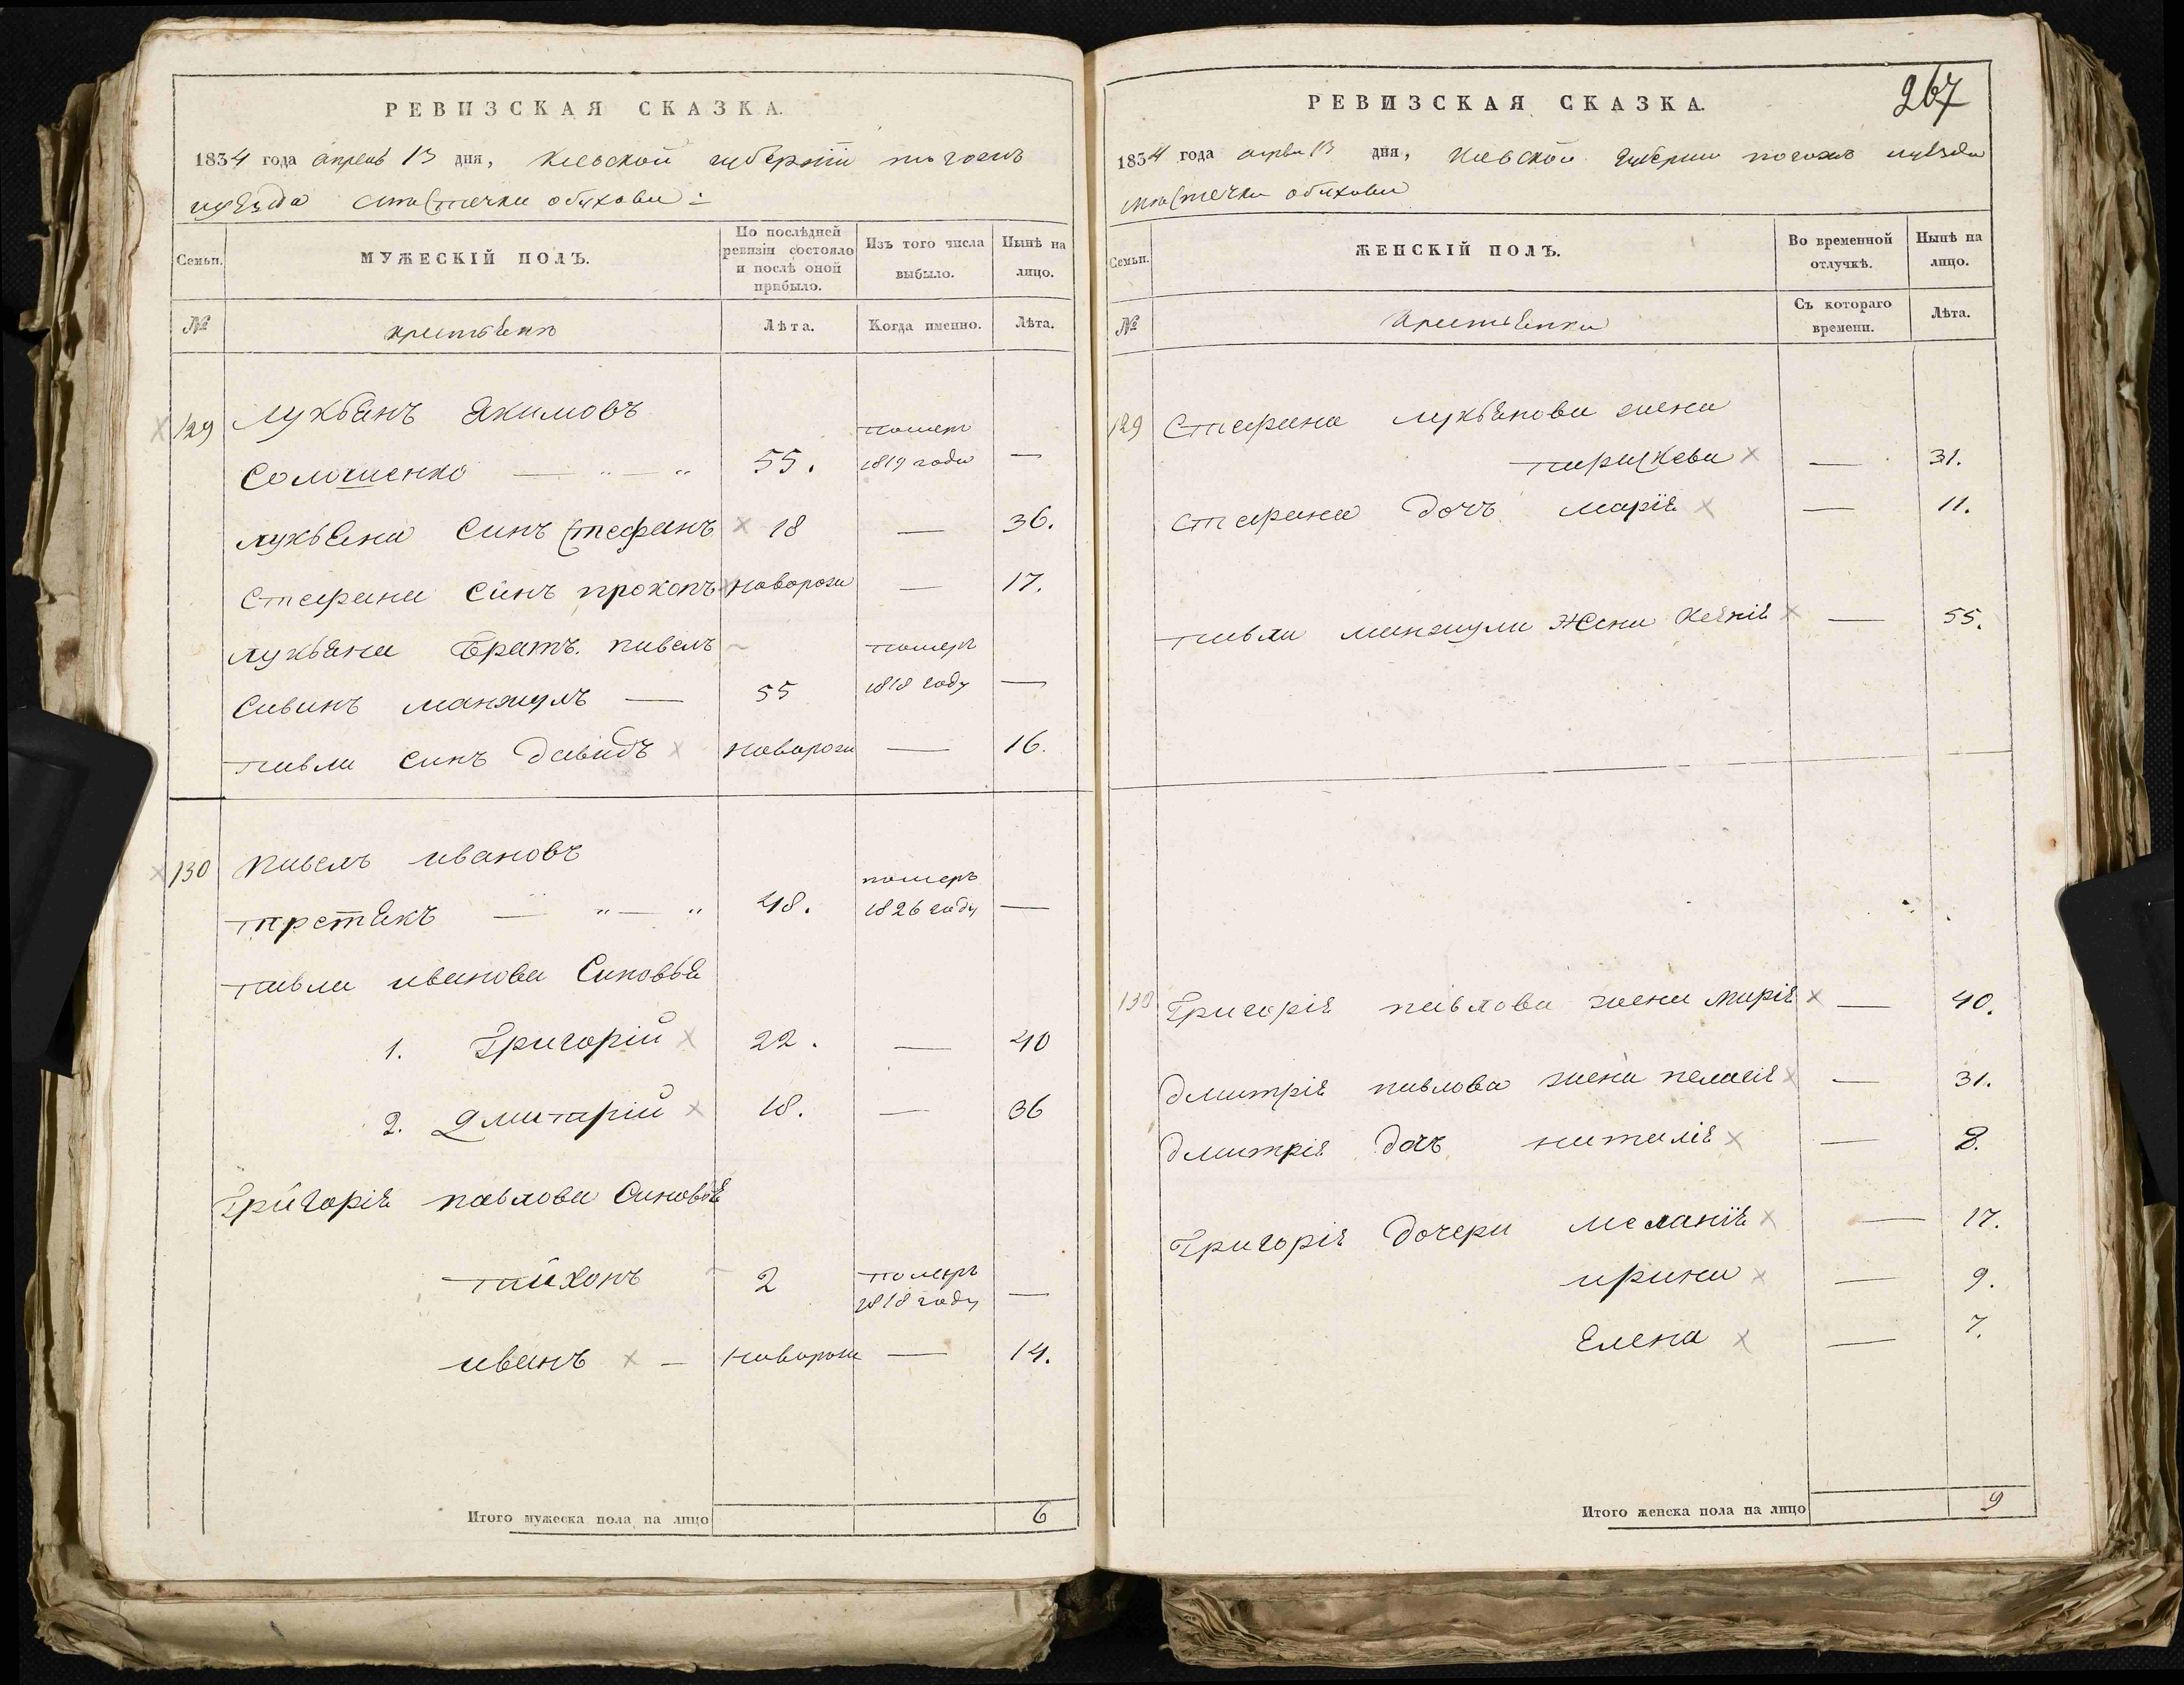 РЕВИЗСКАЯ СКАЗКА.
1834 года апреля 13 дня, Киевской губернии того жъ
уезда местечка обухова:
Семьи.
МУЖЕСКІЙ ПОЛЪ.
По послѣдней ревизіи состояло и послѣ оной прибыло.
Изъ того числа выбыло.
Нынѣ на лицо.
№
крестьянъ
Лѣта.
Когда именно.
Лѣта.
129 Лукьянъ Якимовъ
Солошенко — „ — „ 55. помер 1819 года —
лукьяна синъ Стефанъ 18 — 36.
Стефана синъ прокопъ новорож — 17.
лукьяна братъ павелъ помер
Савинъ манжулъ — 55 1818 году —
павла синъ давидъ новорож — 16.
130 павелъ ивановъ
 — „ — „ 48. померъ 1826 году —
павла иванова Синовья
1. Григорій 22. — 40
2. Дмитрій 18. — 36
Григорія павлова Синовья
тихонъ 2 померъ 1818 году —
иванъ — новорож — 14.
Итого мужеска пола на лицо 6
267
РЕВИЗСКАЯ СКАЗКА.
1834 года апреля 13 дня, Киевской Губернии того жъ уезда
местечка обухова
Семьи.
ЖЕНСКІЙ ПОЛЪ.
Во временной отлучкѣ.
Нынѣ на лицо.
№
Крестьянки
Съ котораго времени.
Лѣта.
129 Стефана лукьянова жена
параскева — 31.
Стефана дочъ марія — 11.
павла манжула жена — 55.
130 Григорія павлова жена марія — 40.
дмитрія павлова жена пелагія — 31.
дмитрія дочъ наталія — 8.
Григорія дочери меланія — 17.
ирина — 9.
Елена — 7.
Итого женска пола на лицо 9